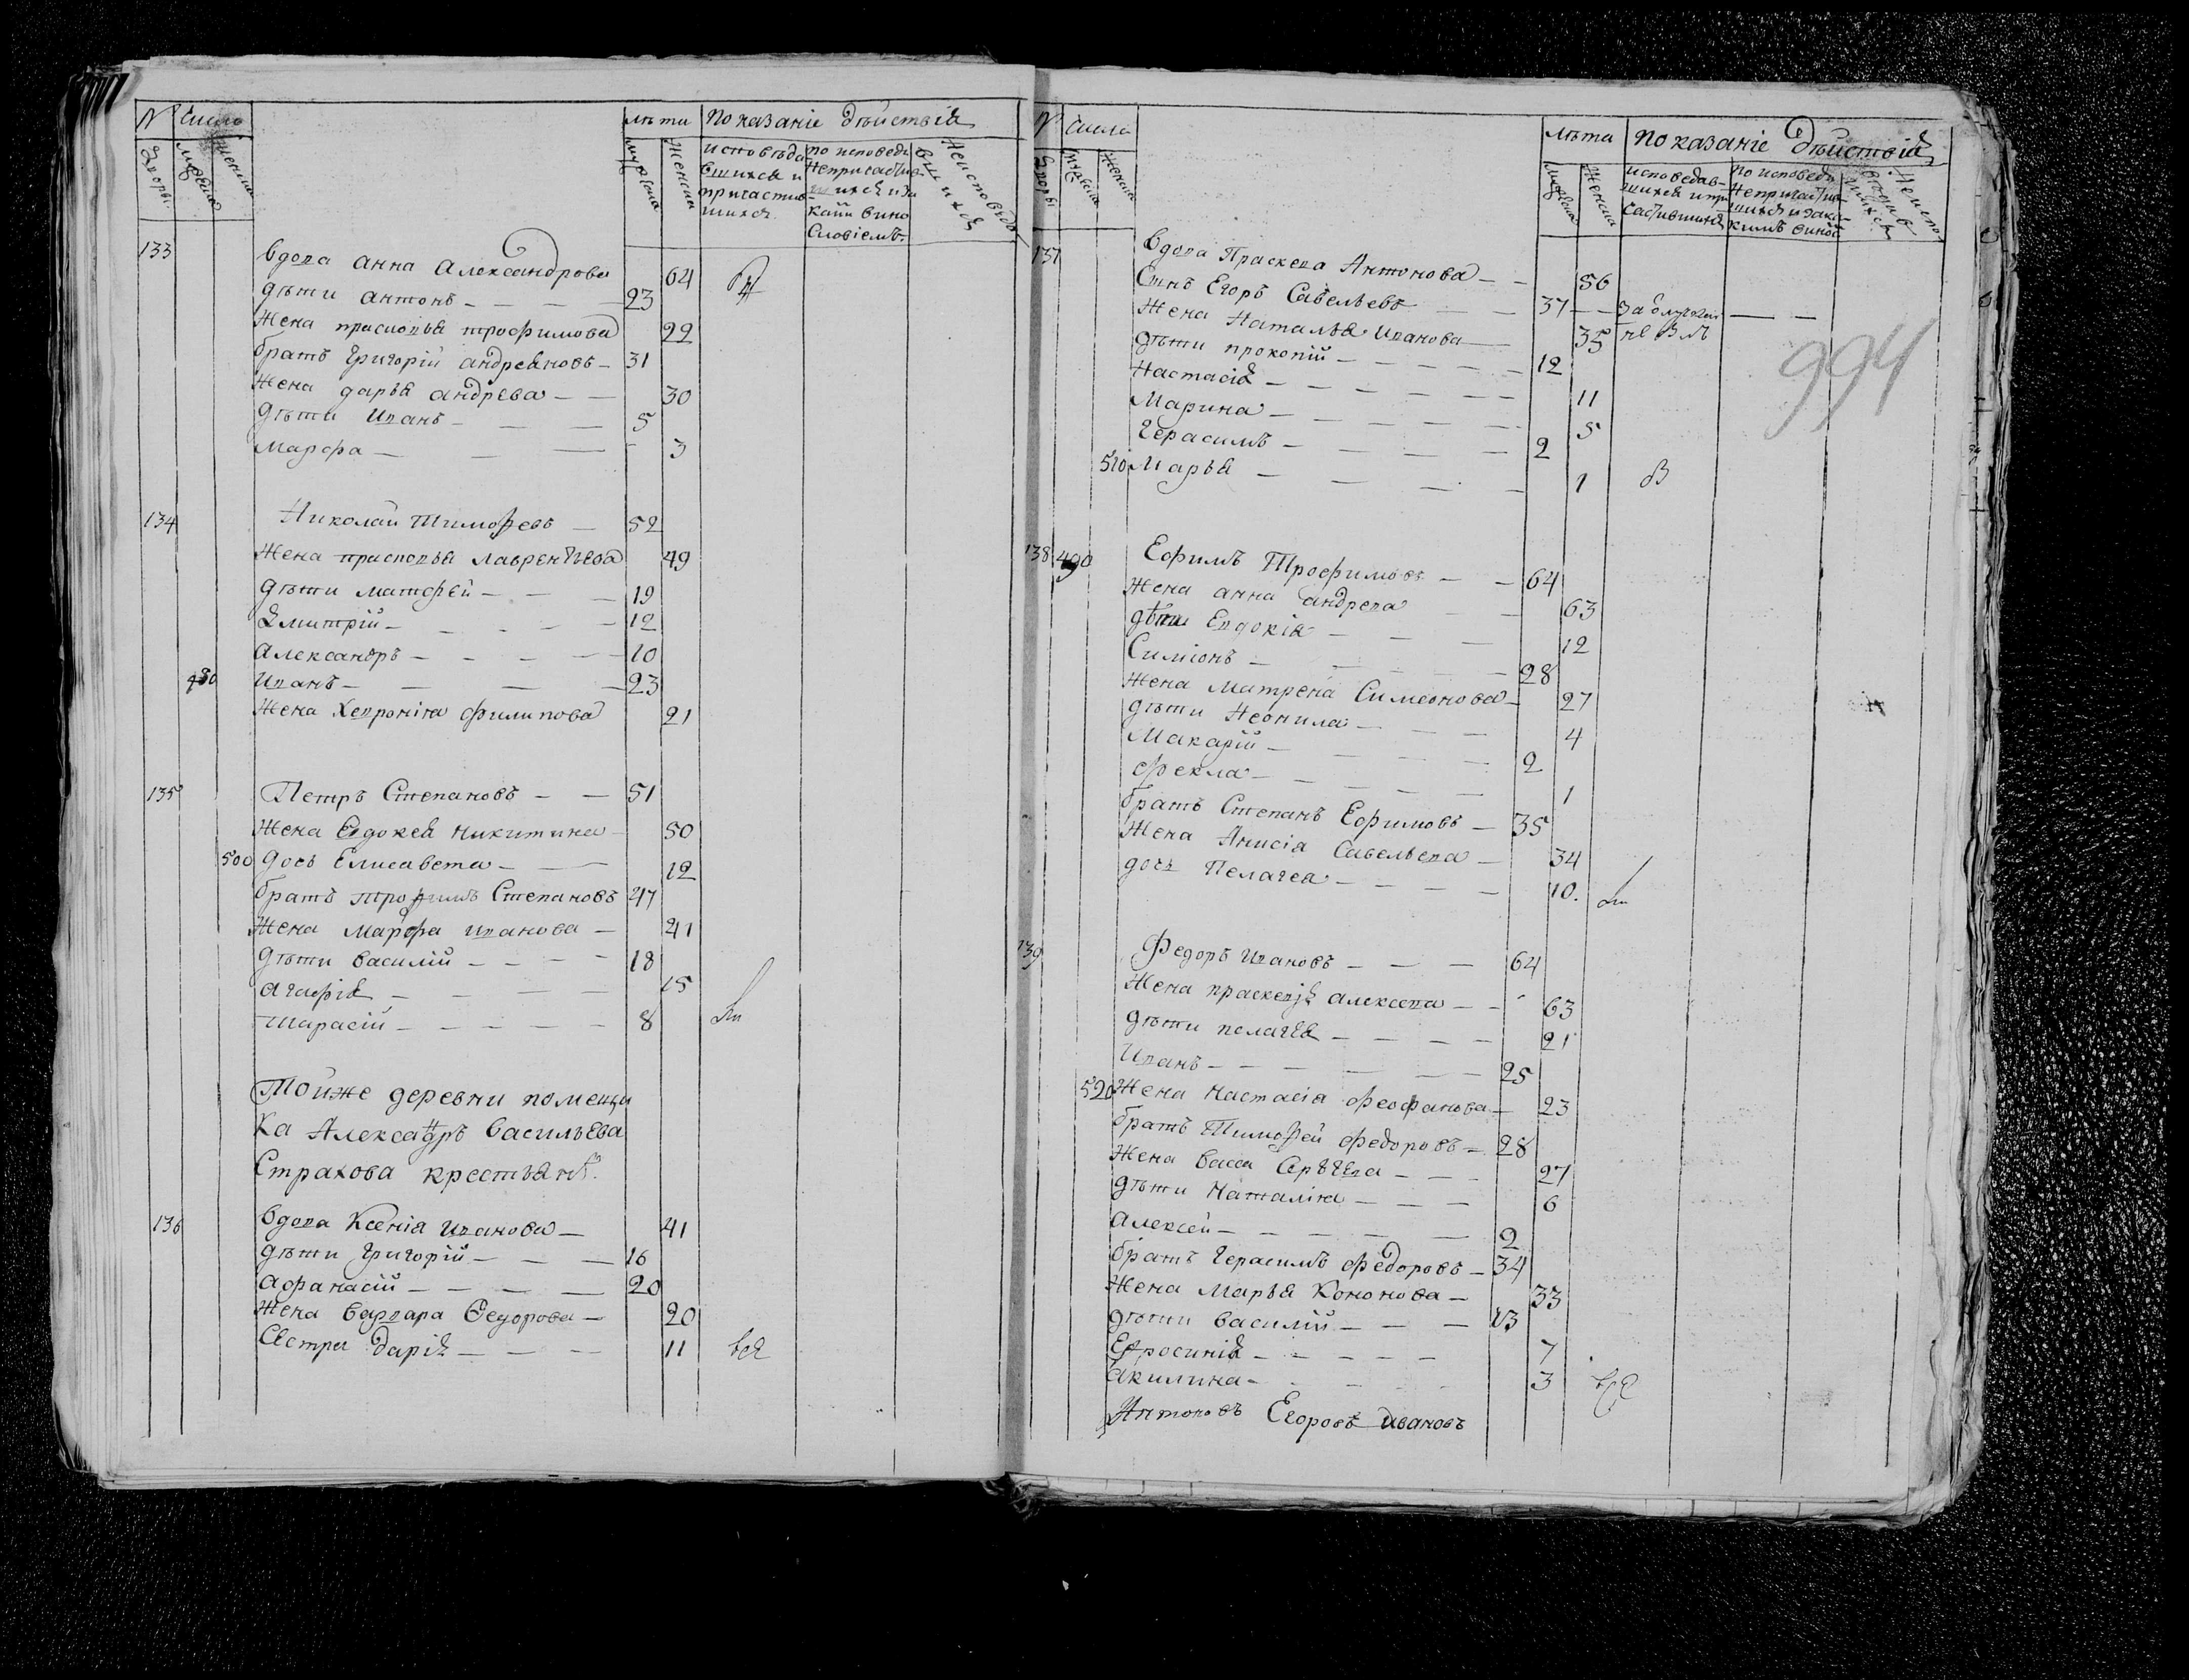 № Число лѣта показаніе дѣйствія
дворы мужеска женска мужеска женски исповѣдавшихся и причастившихся по исповеди непричастившихся и за каким винословіемъ. неисповѣдавшихся
133 вдова анна александрова 64
дѣти антонъ 23
жена прасковья трофимова 22
братъ григорій андреяновъ 31
жена дарья андрева 30
дѣти иванъ 5
марфа 3
134 Николай Тимофевъ 52
жена прасковья лаврентьева 49
дѣти матфей 19
дмитрій 12
александръ 10
иванъ 23
жена хевроніа филипова 21
135 Петръ Степановъ 51
жена Евдокея никитина 50
500 дочь Елисавета 12
братъ трофимъ Степановъ 47
жена марфа иванова 41
дѣти василій 18
агафія 15
тарасій 8
Тойже деревни помещи
ка Александръ васильева
Страхова крестьянѣ.
136 вдова Ксенія иванова 41
дѣти григорій 16
афанасій 20
жена варвара Ѳедорова 20
сестра дарія 11 вся
№ Число лѣта показаніе дѣйствія
дворы мужеска женска мужеска женска исповедавшихся и причастившихся по исповедѣ непричастившихся и за каким виной неисповѣдавшихся
137 вдова Праскева Антонова 56
Сынъ Егоръ Савельевъ 37
жена Наталья иванова 35
дѣти прокопій 12
Настасія 11
Марина 5
Герасимъ 2
510 Марья 1
138 490 Ефимъ Трофимовъ 64
жена анна андрева 63
дѣти Евдокія 12
Симіонъ 28
жена матрена Симеонова 27
дѣти Неонила 4
Макарій 2
фекла 1
братъ Степанъ Ефимовъ 35
жена Анисія Савельева 34
дочь Пелагея 10.
139 Федоръ ивановъ 64
жена праскевія алексева 63
дѣти пелагея 21
иванъ 25
520 жена настасія феофанова 23
братъ Тимофей федоровъ 28
жена васса Сргѣева 27
дѣти Наталіа 6
алексей 2
братъ герасимъ федоровъ 34
жена марья Кононова 33
дѣти василій 13
Ефросинія 7
акилина 3
Антоновъ Егоровъ ивановъ
994